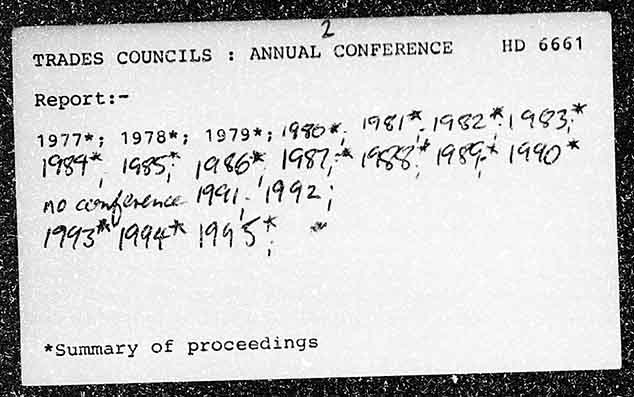 2
TRADES COUNCILS : ANNUAL CONFERENCE HD 6661
Report:-
1977*; 1978*; 1979*; 1980*; 1981*; 1982*; 1983;*
1984*; 1985;* 1986*; 1987;* 1988;* 1989;* 1990*
no conference 1991, 1992;
1993*; 1994* 1995*;
*Summary of proceedings